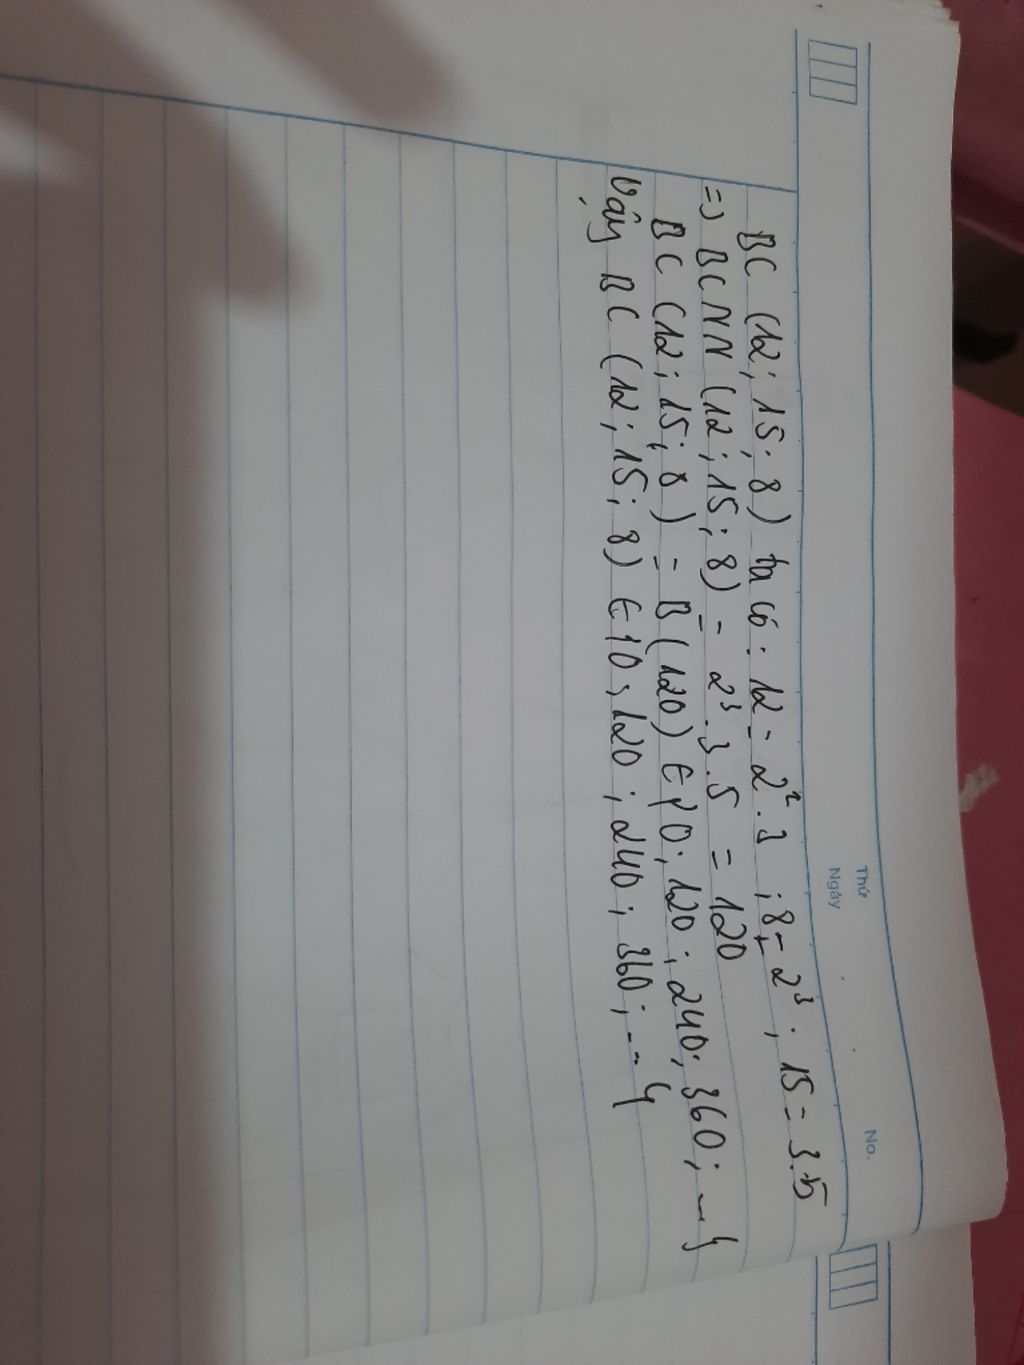 Thứ
Ngày
No.
BC (12; 15; 8) ta có: 12 = 2².3 ; 8 = 2³ ; 15 = 3.5
=> BCNN (12; 15; 8) = 2³.3.5 = 120
BC (12; 15; 8) = B(120) ∈ {0; 120; 240; 360; ...}
Vậy BC (12; 15; 8) ∈ {0; 120; 240; 360; ...}